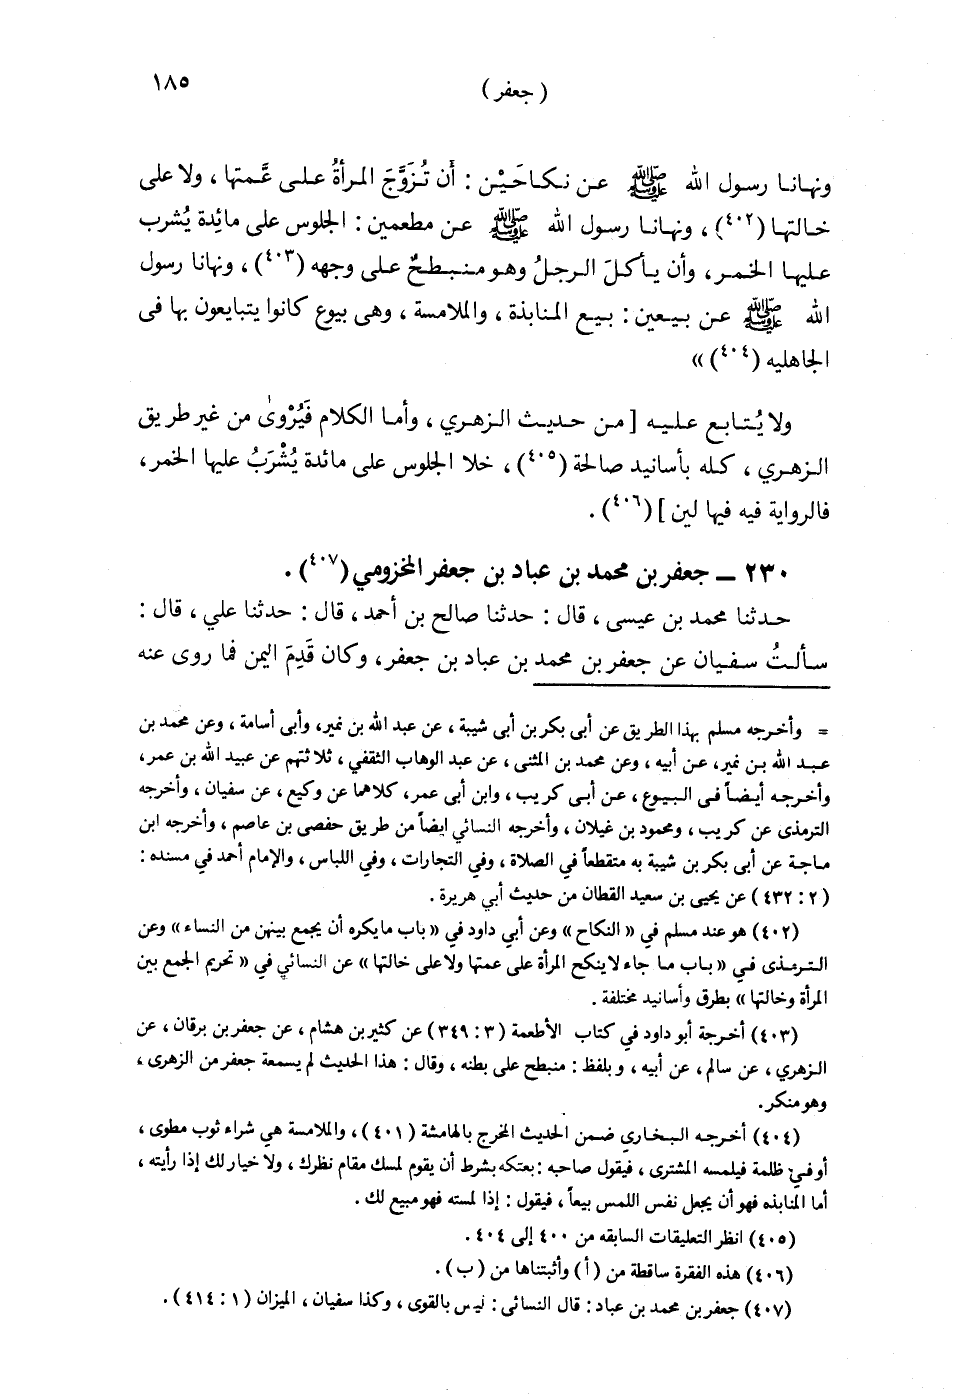 (جعفر)
١٨٥
ونهانا رسول الله ﷺ عن نكاحَيْن : أن تُزَوَّجَ المرأةُ على عَّمتها ، ولا على
خالتها (٤٠٢) ، ونهانا رسول الله ﷺ عن مطعمين : الجلوس على مائِدة يُشرب
عليها الخمر، وأن يأكلَ الرجلُ وهو منبطحٌ على وجهه (٤٠٣) ، ونهانا رسول
الله ﷺ عن بيعين : بيع المنابذة ، والملامسة ، وهى بيوع كانوا يتبايعون بها فى
الجاهليه (٤٠٤) »
ولا يُتابع عليه [ من حديث الزهري ، وأما الكلام فَيُرْوىٰ من غير طريق
الزهري ، كله بأسانيد صالحة (٤٠٥) ، خلا الجلوس على مائدة يُشْرَبُ عليها الخمر،
فالرواية فيه فيها لين ] (٤٠٦) .
٢٣٠ ــ جعفر بن محمد بن عباد بن جعفر المخزومي (٤٠٧) .
حدثنا محمد بن عيسى ، قال : حدثنا صالح بن أحمد ، قال : حدثنا علي ، قال :
سألتُ سفيان عن جعفر بن محمد بن عباد بن جعفر، وكان قَدِمَ اليمن فما روى عنه
= وأخرجه مسلم بهذا الطريق عن أبى بكر بن أبى شيبة ، عن عبد الله بن نمير، وأبى أسامة ، وعن محمد بن
عبد الله بن نمير، عن أبيه ، وعن محمد بن المثنى ، عن عبد الوهاب الثقفي ، ثلاثتهم عن عبيد الله بن عمر،
وأخرجه أيضاً فى البيوع ، عن أبى كريب ، وابن أبى عمر، كلاهما عن وكيع ، عن سفيان ، وأخرجه
الترمذى عن كريب ، ومحمود بن غيلان ، وأخرجه النسائي ايضاً من طريق حفصى بن عاصم ، وأخرجه ابن
ماجة عن أبى بكر بن شيبة به متقطعاً في الصلاة ، وفي التجارات ، وفي اللباس ، والإمام أحمد في مسنده :
(٢ : ٤٣٢) عن يحيى بن سعيد القطان من حديث أبي هريرة .
(٤٠٢) هو عند مسلم في « النكاح » وعن أبي داود في « باب ما يكره أن يجمع بينهن من النساء » وعن
الترمذى في « باب ما جاء لا ينكح المرأة على عمتها ولا على خالتها » عن النسائي في « تحريم الجمع بين
المرأة وخالتها » بطرق وأسانيد مختلفة .
(٤٠٣) أخرجة أبو داود في كتاب الأطعمة (٣ : ٣٤٩) عن كثير بن هشام ، عن جعفر بن برقان ، عن
الزهري ، عن سالم ، عن أبيه ، وبلفظ : منبطح على بطنه ، وقال : هذا الحديث لم يسمعة جعفر من الزهرى ،
وهو منكر.
(٤٠٤) أخرجه البخاري ضمن الحديث المخرج بالهامشة (٤٠١) ، والملامسة هي شراء ثوب مطوى ،
أو في ظلمة فيلمسه المشترى ، فيقول صاحبه : بعتكه بشرط أن يقوم لمسك مقام نظرك ، ولا خيار لك إذا رأيته ،
أما المنابذه فهو أن يجعل نفس اللمس بيعاً ، فيقول : إذا لمسته فهو مبيع لك .
(٤٠٥) انظر التعليقات السابقه من ٤٠٠ إلى ٤٠٤ .
(٤٠٦) هذه الفقرة ساقطة من (أ) وأثبتناها من (ب) .
(٤٠٧) جعفر بن محمد بن عباد : قال النسائى : ليس بالقوى ، وكذا سفيان ، الميزان (١ : ٤١٤) .